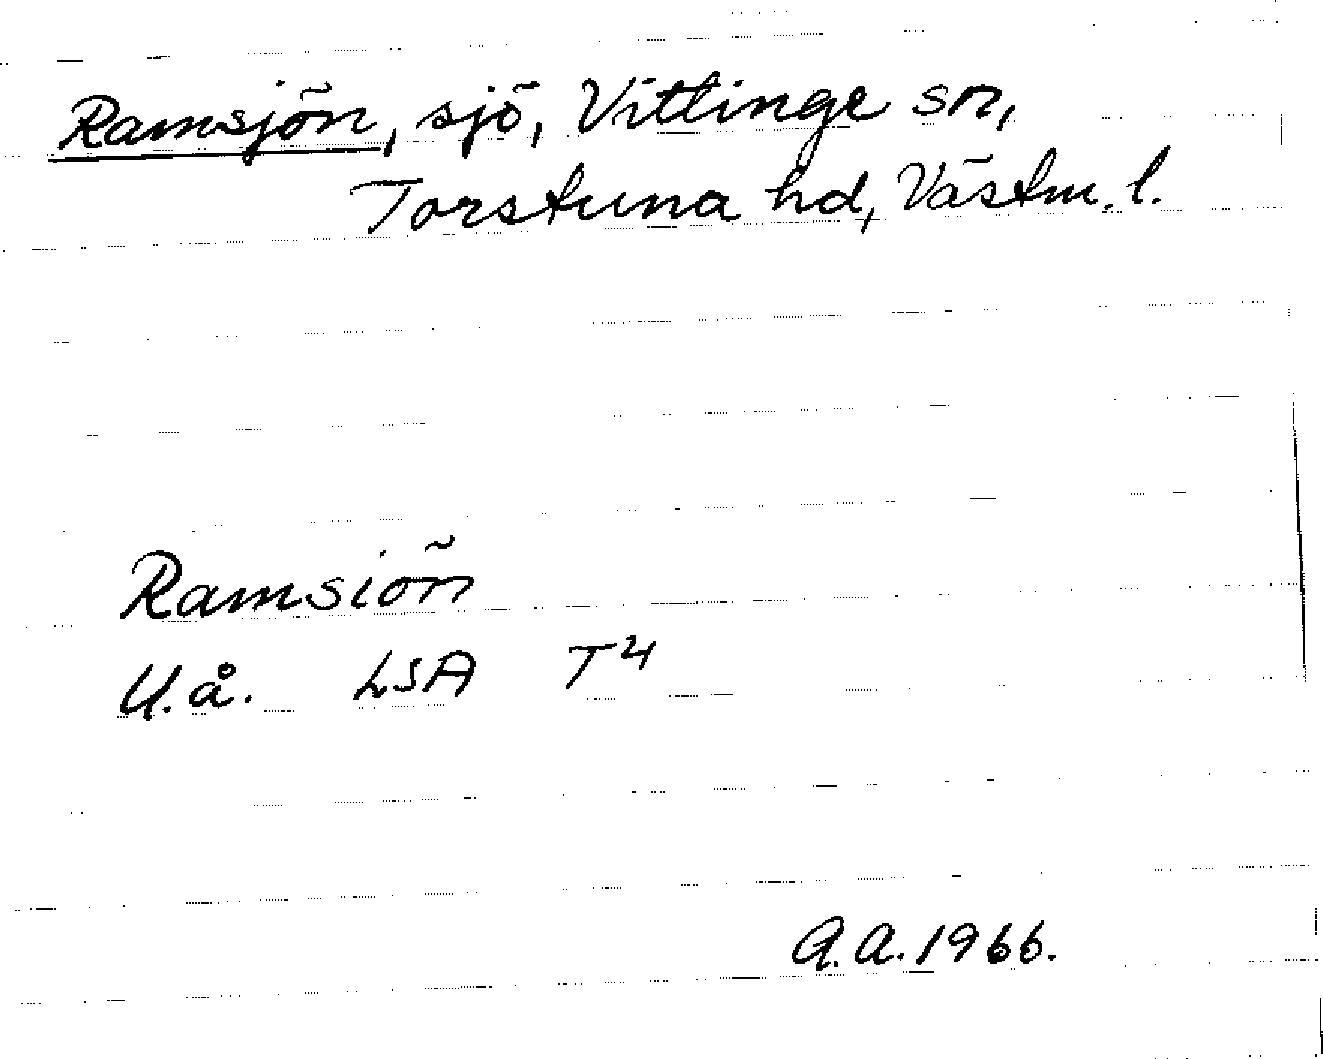 Ramsjön, sjö, Vittinge sn,
Torstuna hd, Västm. l.
Ramsiön
U.å. LSA T24
A.A. 1966.